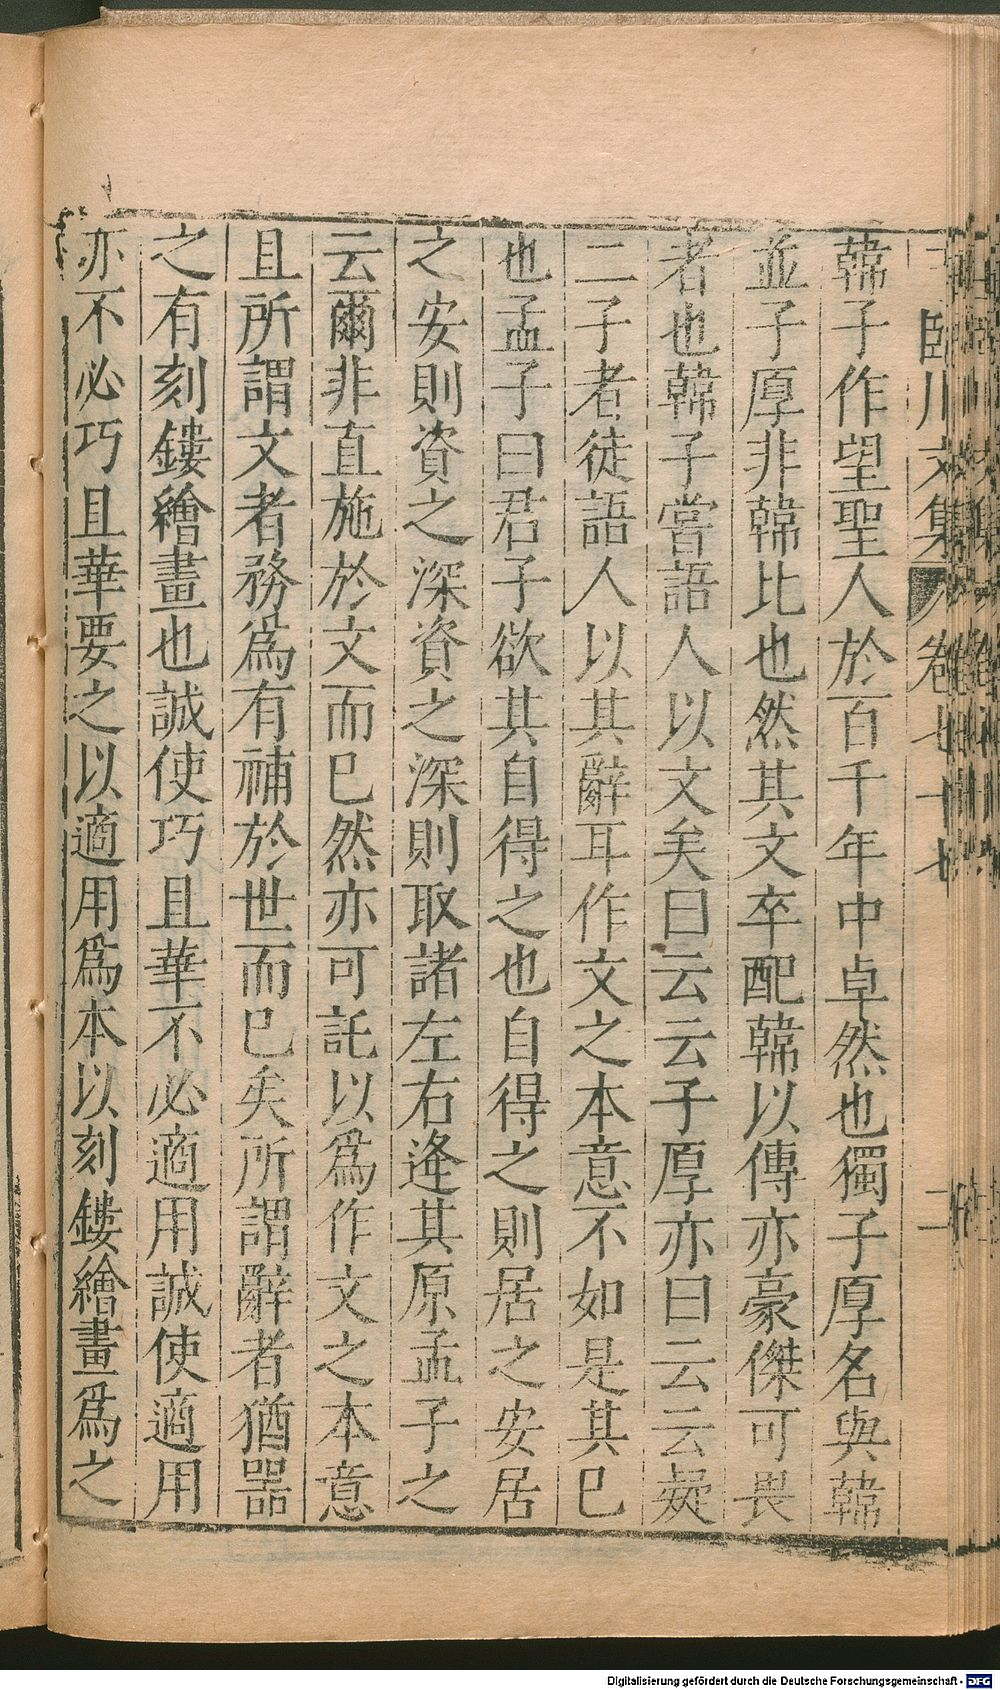 臨川文集 卷七十七 二
韓子作望聖人於百千年中卓然也獨子厚名與韓
並子厚非韓比也然其文卒配韓以傳亦豪傑可畏
者也韓子嘗語人以文矣曰云云子厚亦曰云云疑
二子者徒語人以其辭耳作文之本意不如是其已
也孟子曰君子欲其自得之也自得之則居之安居
之安則資之深資之深則取諸左右逢其原孟子之
云爾非直施於文而已然亦可託以爲作文之本意
且所謂文者務爲有補於世而已矣所謂辭者猶器
之有刻鏤繪畫也誠使巧且華不必適用誠使適用
亦不必巧且華要之以適用爲本以刻鏤繪畫爲之
Digitalisierung gefördert durch die Deutsche Forschungsgemeinschaft - DFG